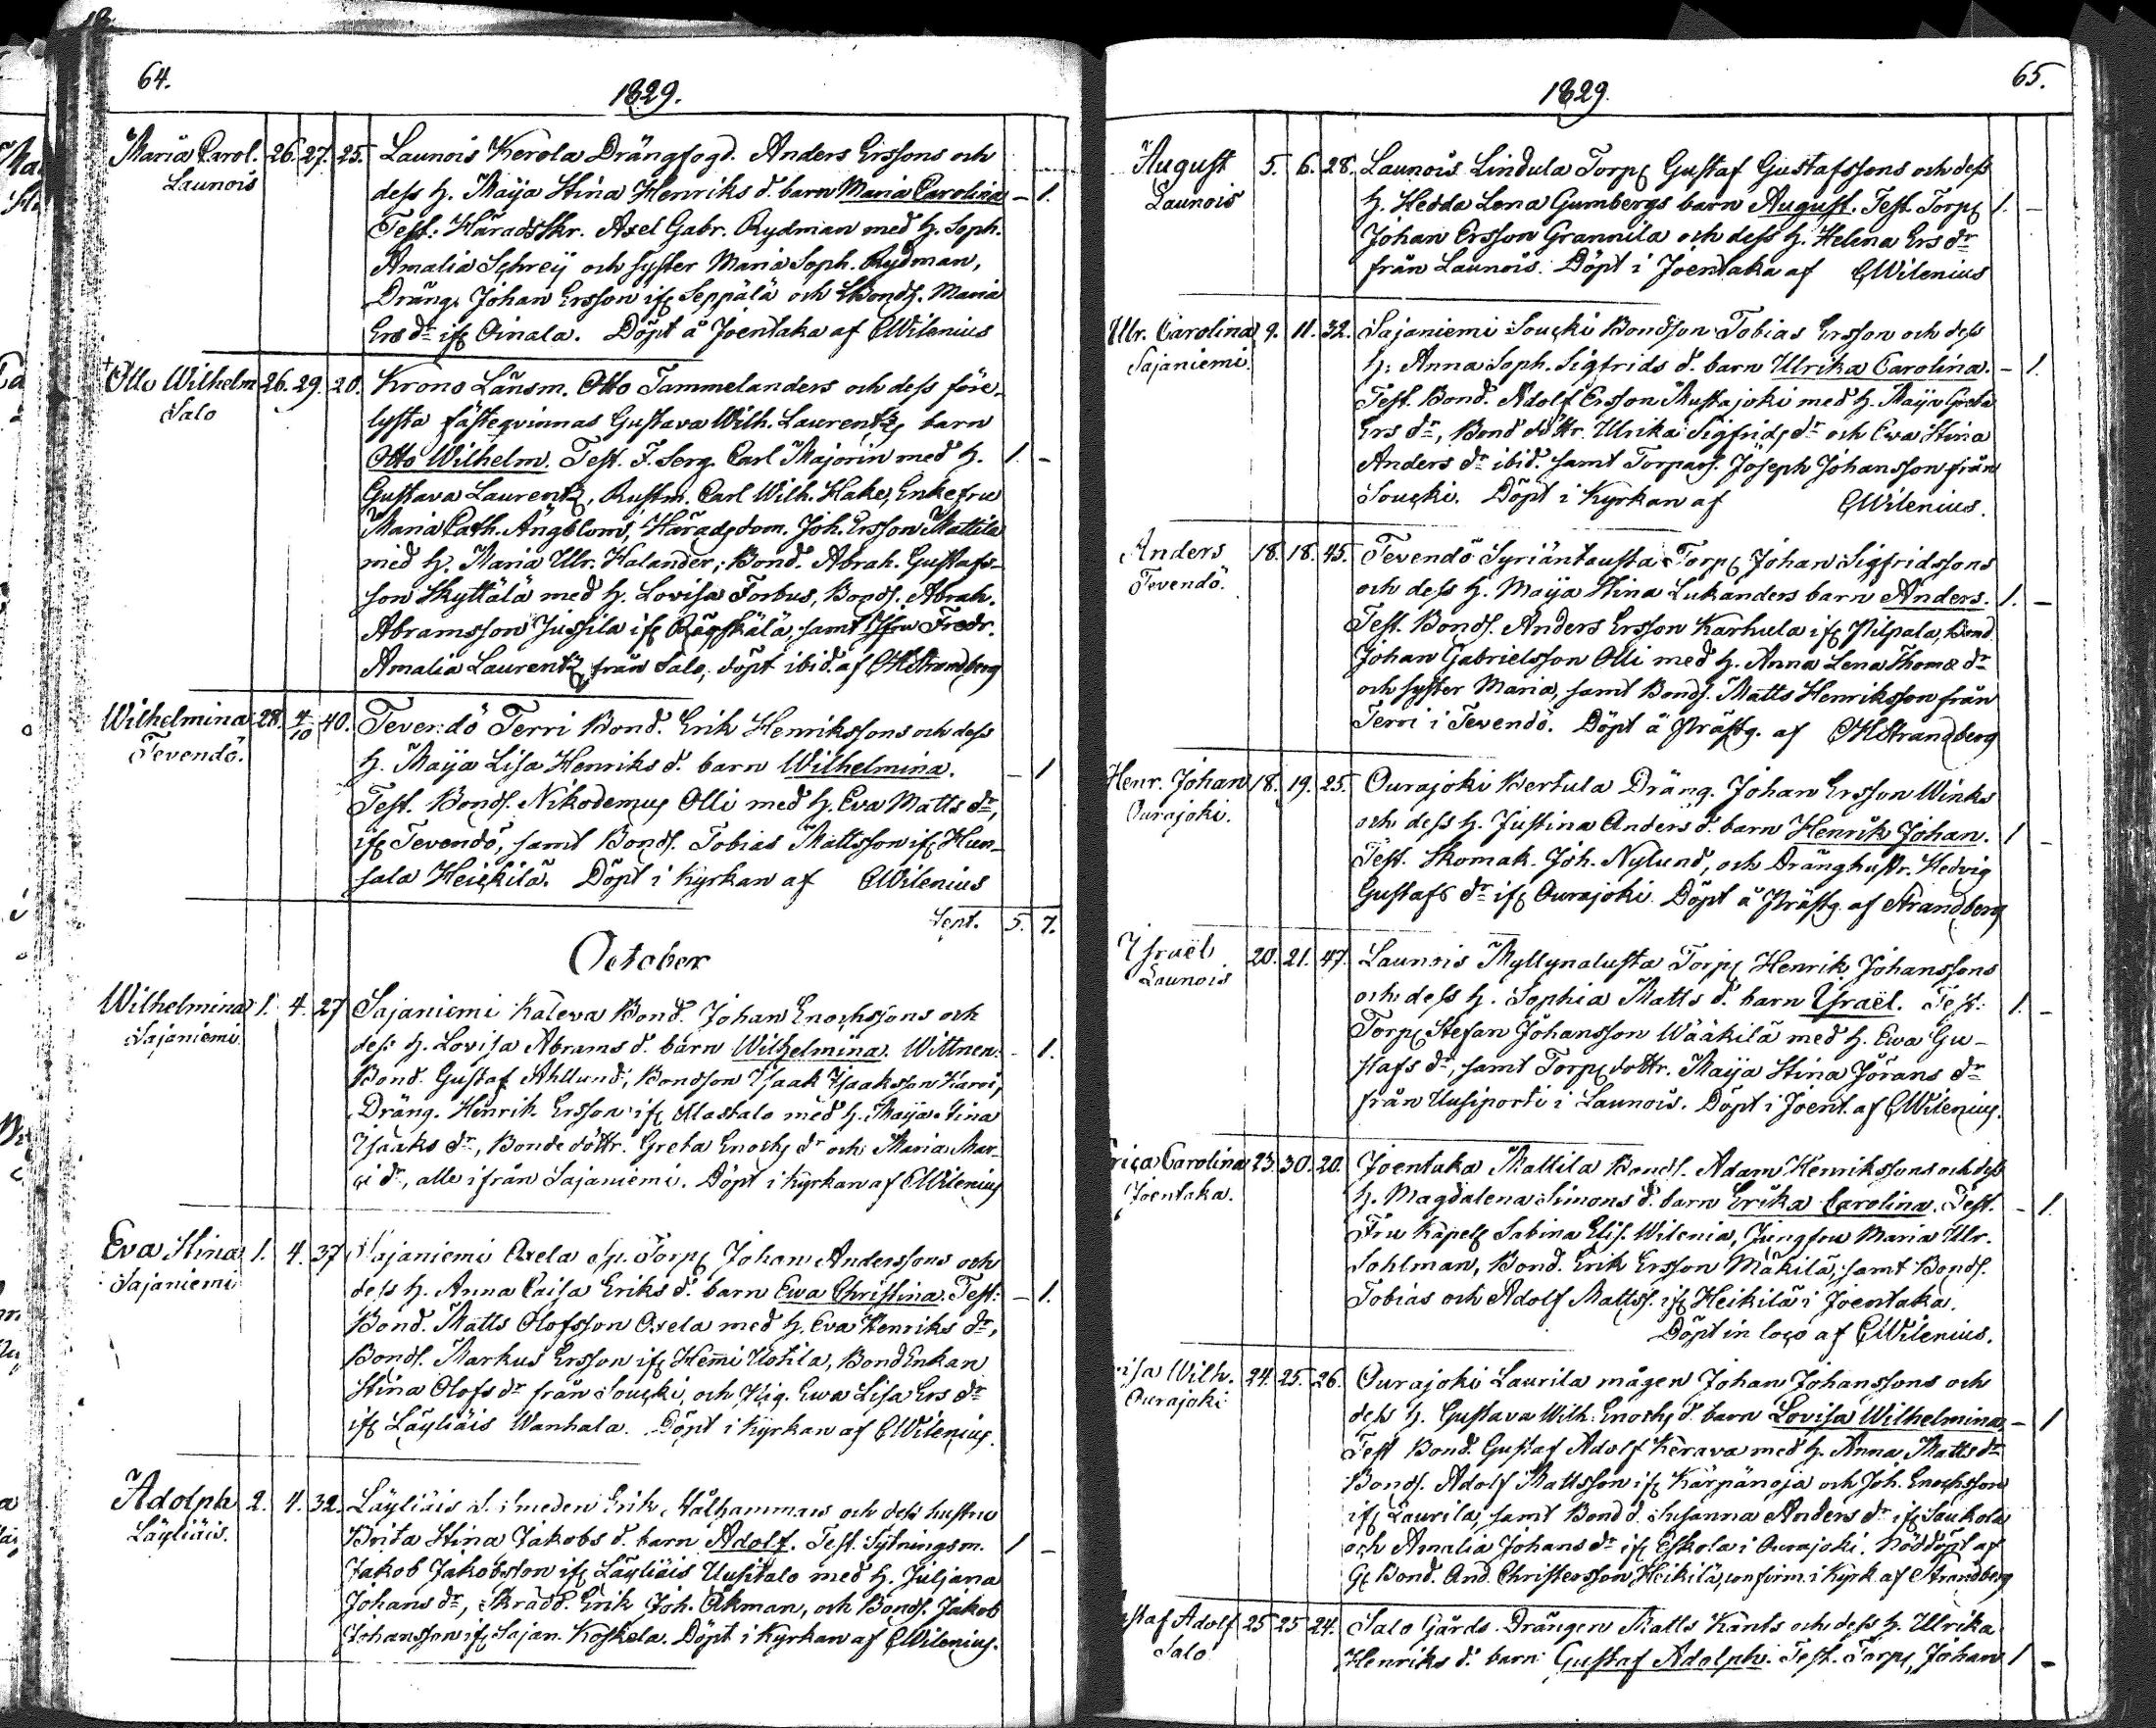 64.
1829.
Maria Carol. 26. 27. 25. Launois Kerola Drängfogd. Anders Erssons och
Launois dess h. Maija Stina Henriks d. barn Maria Carolina – 1.
Test: HäradsSkr. Axel Gabr. Rydman med h. Soph.
Amalia Schreij och syster Maria Soph. Rydman,
Dräng. Johan Ersson ifr Seppälä och Bonds. Maria
Ers dr ifr Oinala. Döpt å Joentaka af CWilenius
+ Otto Wilhelm 26. 29. 20. Krono Länsm. Otto Tammelanders och dess före-
Salo lysta fästeqvinnas Gustava Wilh. Laurentz barn
Otto Wilhelm. Test. F. Serg. Carl Majorin med h. 1. –
Gustava Laurentz, Rustm. Carl Wilh. Hake, Enkefru
Maria Cath. Ängblom, Häradsdom. Joh. Ersson Mattila
med h. Maria Ulr. Halander, Bond. Abrah. Gustafs-
son Skyttälä med h. Lovisa Forbus, Bonds. Abrah.
Abramsson Jussila ifr samt Jfru Fredr.
Amalia Laurentz från Salo, döpt ibid. af CHStrandberg
Wilhelmina 28. 4/10 40. Tevendö Terri Bond. Erik Henrikssons och dess
Tevendö. h. Maija Lisa Henriks d. barn Wilhelmina. – 1
Test. Bonds. Nikodemus Olli med h. Eva Matts dr,
ifr Tevendö, samt Bonds. Tobias Mattsson ifr Hun-
sala Heickilä. Döpt i Kyrkan af CWilenius
Sept. 5. 7.
October
Wilhelmina 1. 4. 27 Sajaniemi Kaleva Bond. Johan Enochssons och
Sajaniemi dess h. Lovisa Abrams d. barn Wilhelmina. Wittnen: – 1.
Bond. Gustaf Ahllund, Bondson Isaak Isaaksson
Dräng. Henrik Ersson ifr Alastalo med h. Maija Stina
Isaaks dr, Bondedöttr. Greta Enochs dr och Maria Mar-
ci dr, alle ifrån Sajaniemi. Döpt i Kyrkan af CWilenius
Eva Stina 1. 4. 37 Sajaniemi Axela Sp. Torp. Johan Anderssons och
Sajaniemi dess h. Anna Caisa Eriks d. barn Ewa Christina. Test: – 1.
Bond. Matts Olofsson Oxela med h. Eva Henriks dr,
Bonds. Markus Ersson ifr Hemmi Uotila, BondEnkan
Stina Olofs dr från Soucki, och Pig. Ewa Lisa Ers dr
ifr Läyliäis Wanhala. Döpt i Kyrkan af CWilenius.
Adolph 2. 4. 32. Läyliäis S. Smeden Erik Wålhammars och dess hustru
Läyliäis. Brita Stina Jakobs d. barn Adolf. Test. Sytningsm. 1 –
Jakob Jakobsson ifr Läyliäis Uusitalo med h. Juljana
Johans dr, Skrädd. Erik Joh. Ekman, och Bonds. Jakob
Johansson ifr Sajan. Koskela. Döpt i Kyrkan af CWilenius.
1829.
65.
August 5. 6. 28. Launois Lindula Torp. Gustaf Gustafssons och dess
Launois h. Hedda Lena Gumbergs barn August. Test. Torp. 1. –
Johan Ersson Grannila och dess h. Helena Ers dr
från Launois. Döpt i Joentaka af CWilenius
Ulr. Carolina 9. 11. 32. Sajaniemi Soucki Bondson Tobias Ersson och dess
Sajaniemi. h. Anna Soph. Sigfrids d. barn Ulrika Carolina. – 1.
Test. Bond. Adolf Ersson Mustajoki med h. Maija Greta
Ers dr, Bond döttr. Ulrika Sigfrids dr och Ewa Stina
Anders dr ibid. samt Torpars. Joseph Johansson från
Soucki. Döpt i Kyrkan af CWilenius.
Anders 18. 18. 45. Tevendö Syriäntausta Torp. Johan Sigfridssons
Tevendö. och dess h. Maija Stina Lukanders barn Anders. 1. –
Test. Bonds. Anders Ersson Karhula ifr Pilpala, Bond
Johan Gabrielsson Olli med h. Anna Lena Thomæ dr
och syster Maria, samt Bonds. Matts Henriksson från
Terri i Tevendö. Döpt å Prästg. af CHStrandberg
Henr. Johan 18. 19. 25. Ourajoki Bertula Dräng. Johan Ersson Winks
Ourajoki. och dess h. Justina Anders d. barn Henrik Johan. 1 –
Test. Skomak. Joh. Nylund, och Dränghustr. Hedvig
Gustafs dr ifr Ourajoki. Döpt å Prästg. af Strandberg
Israël 20. 21. 47. Launois Myllynalusta Torp. Henrik Johanssons
Launois och dess h. Sophia Matts d. barn Israël. Test: 1. –
Torp. Stefan Johansson Wääkilä med h. Ewa Gu-
stafs dr, samt Torp. dottr. Maija Stina Jörans dr
från Uusiporti i Launois. Döpt i Joent. af CWilenius.
rica Carolina 23. 30. 20. Joentaka Mattila Bonds. Adam Henrikssons och dess
Joentaka. h. Magdalena Simons d. barn Erika Carolina. Test. – 1.
Fru Kapell Sabina Elis. Wilenia, Jungfru Maria Ulr.
Sohlman, Bond. Erik Ersson Mäkilä, samt Bonds.
Tobias och Adolf Mattss. ifr Heikilä i Joentaka.
Döpt in loco af CWilenius.
isa Wilh. 24. 25. 26. Ourajoki Laurila mågen Johan Johanssons och
Ourajoki dess h. Gustava Wilh. Enochs d. barn Lovisa Wilhelmina, – 1
Test Bond. Gustaf Adolf Kerava med h. Anna Matts dr
Bonds. Adolf Mattsson ifr Kärpänoja och Joh. Enochsson
ifr Laurila, samt Bond d. Susanna Anders dr ifr Saukola
och Amalia Johans dr ifr Eskola i Ourajoki. Nöddöpt af
Bond. And. Christersson Heikilä, confirm. i Kyrk. af Strandberg
staf Adolf 25 25 24. Salo Gårds Drängen Matts Kants och dess h. Ulrika
Salo Henriks d. barn Gustaf Adolph. Test. Torp. Johan 1 –